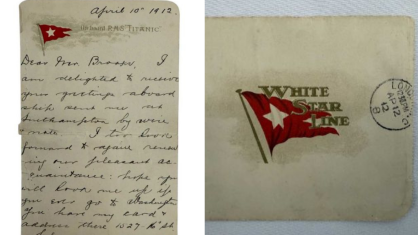 April 10th 1912.
On board R.M.S. "TITANIC"
Dear Mr. I
am delighted to receive
your greetings aboard
which sent me at
Southampton by
I too look
forward to again
ing our pleasant ac
quaintance: hope you
will look me up if
you ever go to Washington
You have my card &
address there 1527 St
WHITE
STAR
LINE
AP 12
12